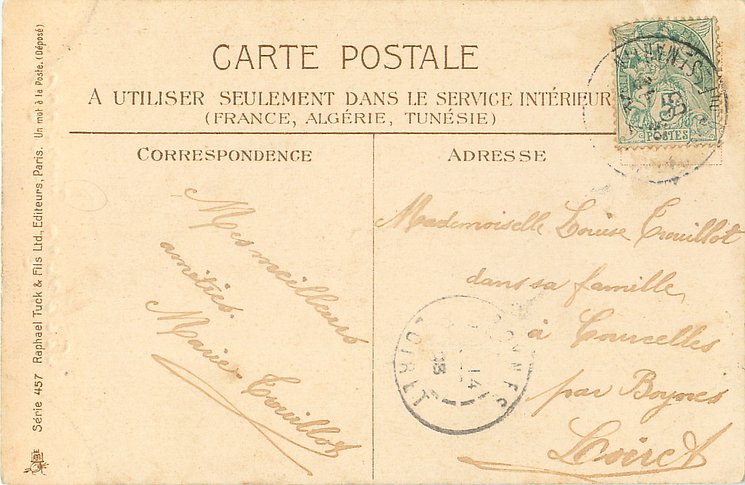 CARTE POSTALE
A UTILISER SEULEMENT DANS LE SERVICE INTÉRIEUR
(FRANCE, ALGÉRIE, TUNÉSIE)
CORRESPONDENCE
Mes meilleures
amitiés.
Marie Trouillot
ADRESSE
Mademoiselle Louise Trouillot
dans sa famille
à Courcelles
par Boynes
Loiret
POSTES
LOIRET
14
Série 457 Raphael Tuck & Fils Ltd., Editeurs, Paris. Un mot à la Poste. (Déposé)